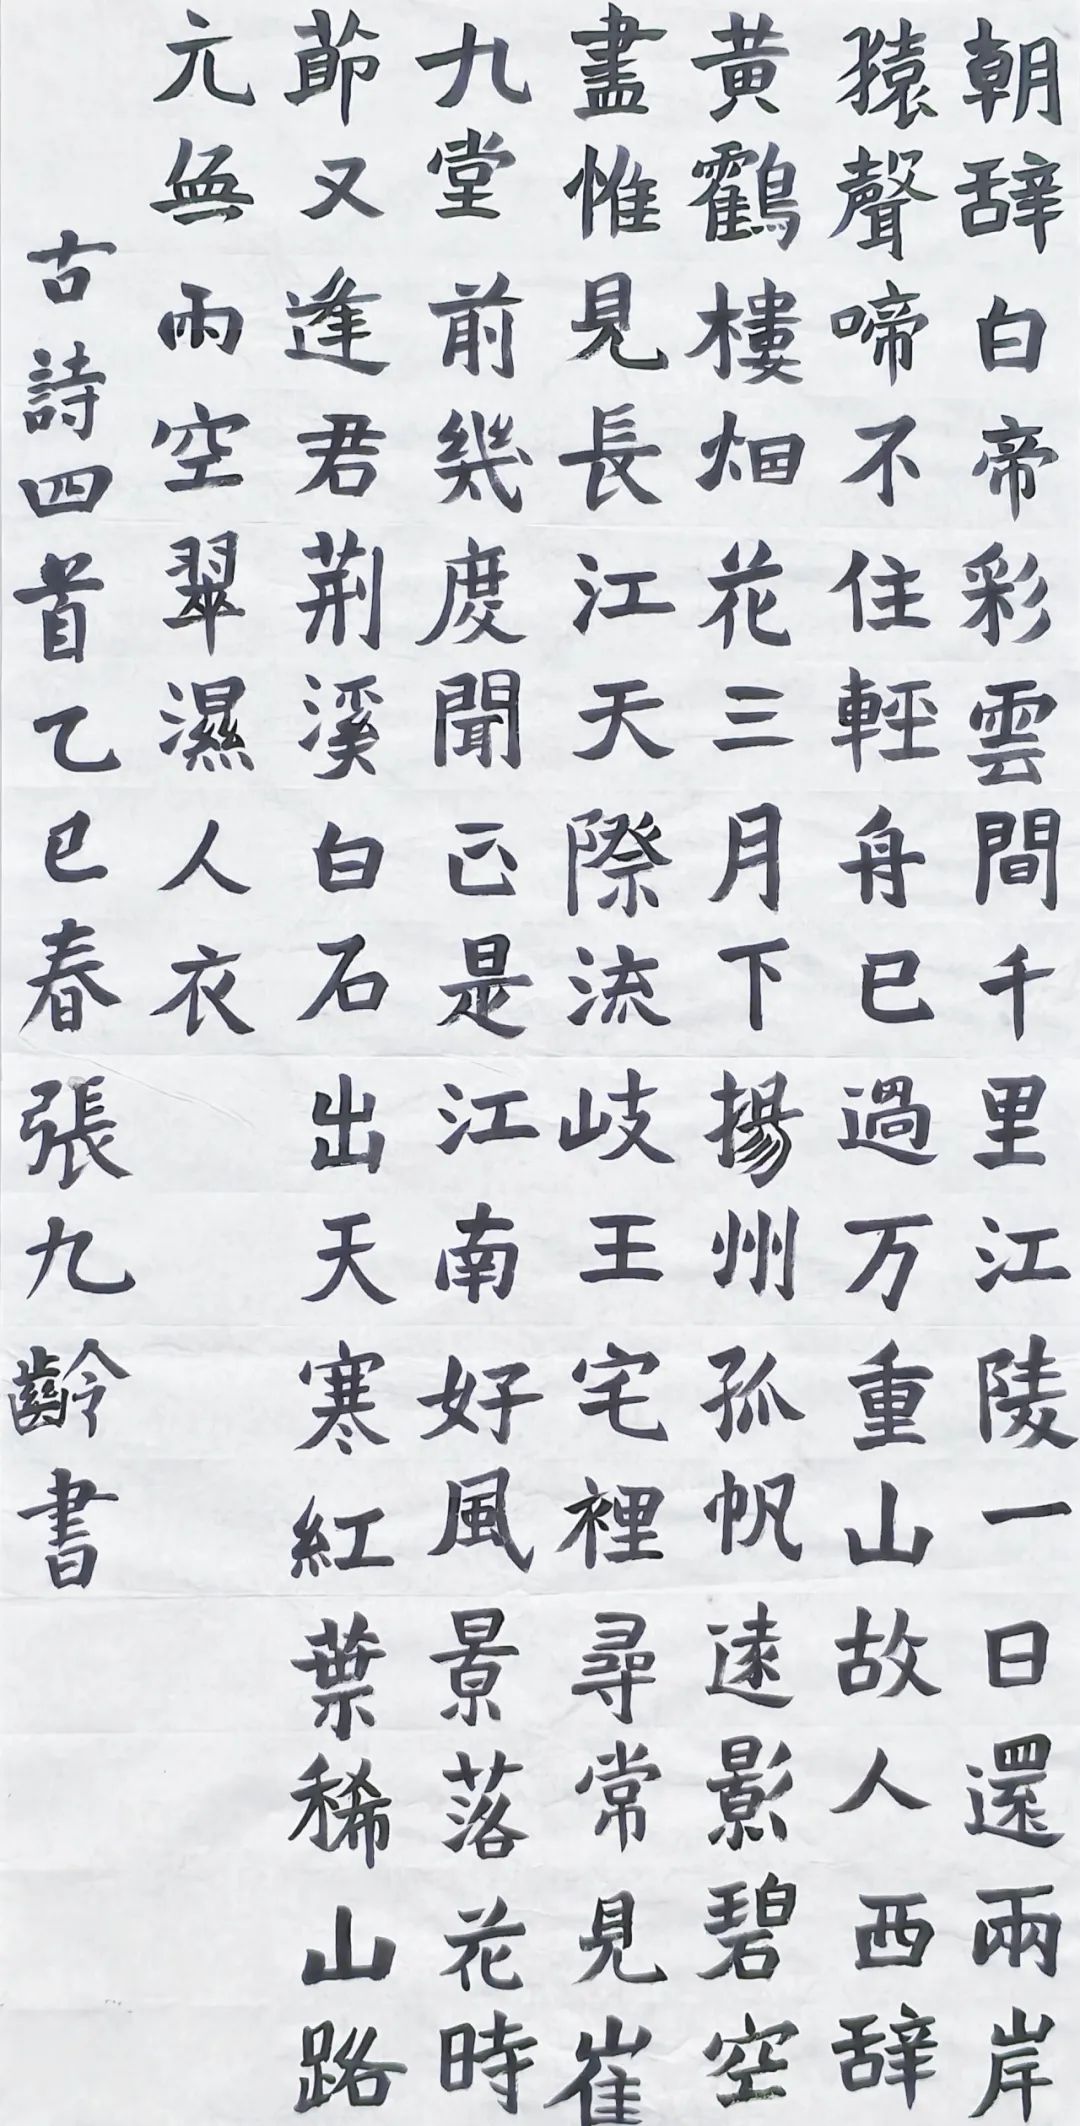 朝辞白帝彩雲間千里江陵一日還兩岸
猿聲啼不住輕舟已過万重山故人西辞
黃鸖樓烟花三月下揚州孤帆遠影碧空
盡惟見長江天際流岐王宅裡尋常見崔
九堂前幾度聞正是江南好風景落花時
節又逢君荆溪白石出天寒紅葉稀山路
元無雨空翠濕人衣
古詩四首乙巳春張九齡書